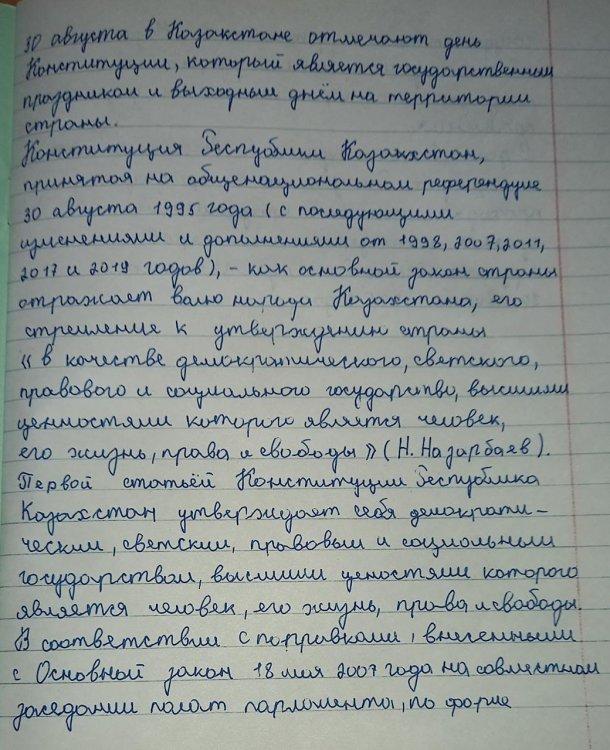 30 августа в Казахстане отмечают день
Конституции, который является государственным
праздником и выходным днём на территории
страны.
Конституция Республики Казахстан,
принятая на общенациональном референдуме
30 августа 1995 года (с последующими
изменениями и дополнениями от 1998, 2007, 2011,
2017 и 2019 годов), - как основной закон страны
отражает волю народа Казахстана, его
стремление к утверждению страны
« в качестве демократического, светского,
правового и социального государства, высшими
ценностями которого является человек,
его жизнь, права и свободы » (Н. Назарбаев).
Первой статьёй Конституции Республика
Казахстан утверждает себя демократи-
ческим, светским, правовым и социальным
государством, высшими ценостями которого
является человек, его жизнь, права и свободы.
В соответствии с поправками, внесенными
с Основной закон 18 мая 2007 года на совместном
заседании палат парламента, по форме